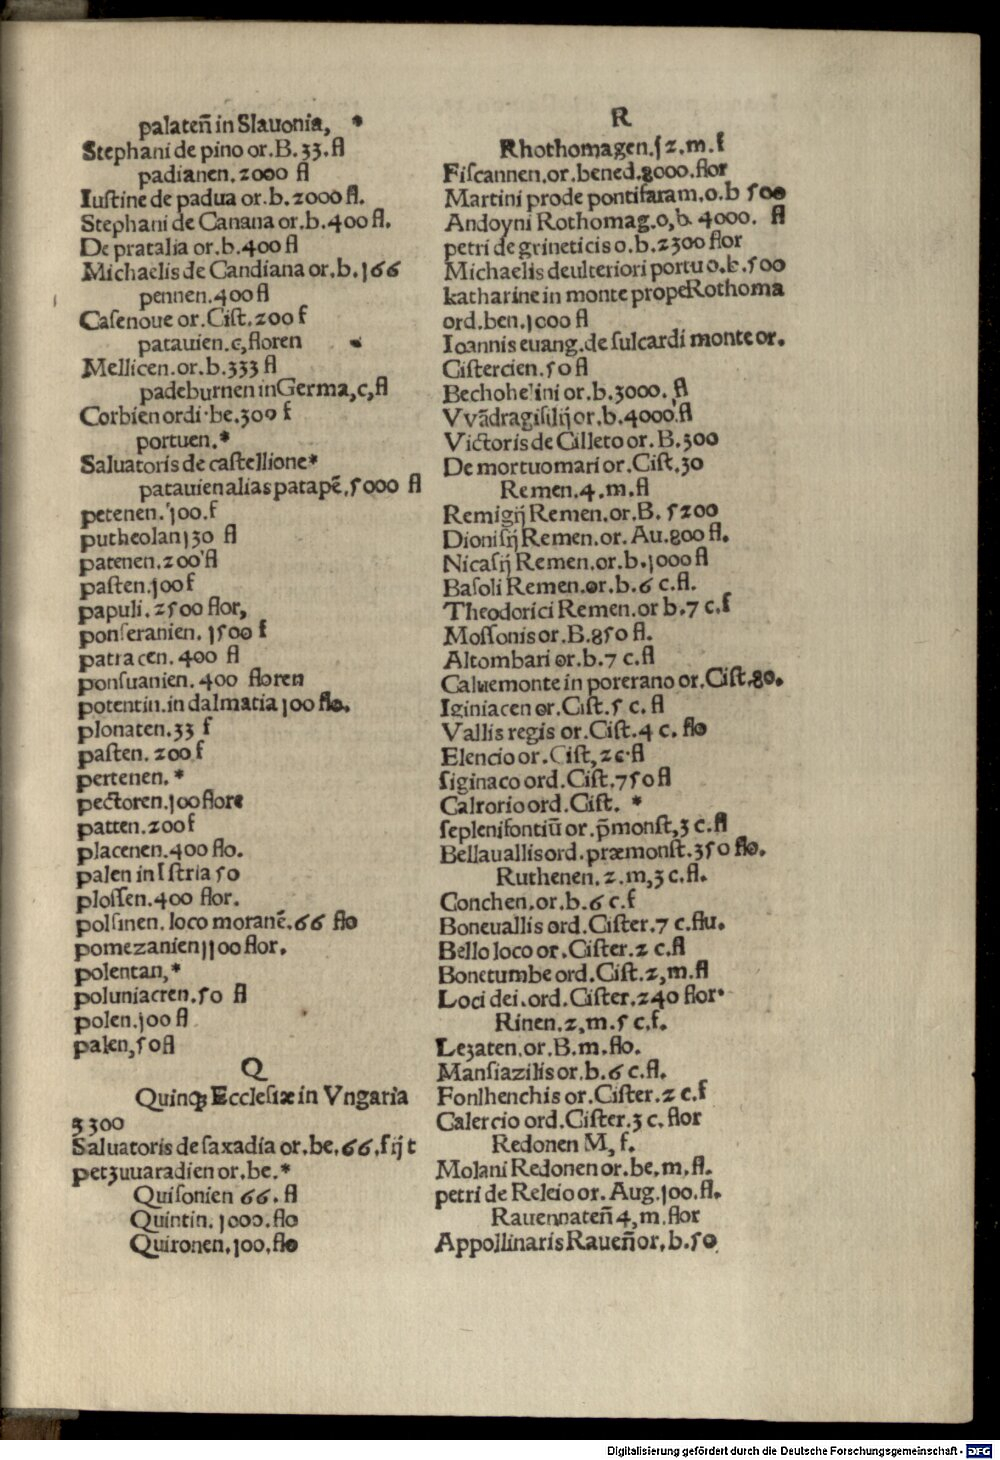 palateñ in Slauonia, *
Stephani de pino or. B. 33. fl
padianen. 2000 fl
Iustine de padua or. b. 2000 fl.
Stephani de Canana or. b. 400 fl.
De pratalia or. b. 400 fl
Michaelis de Candiana or. b. 166
pennen. 400 fl
Casenoue or. Cist. 200 f
patauien. c, floren
Mellicen. or. b. 333 fl
padeburnen in Germa, c, fl
Corbien ordi. be. 300 f
portuen. *
Saluatoris de castellione *
patauien alias patapē. 5000 fl
petenen. 100. f
putheolan 130 fl
patenen. 200 fl
pasten. 100 f
papuli. 2500 flor,
ponseranien. 1500 f
patracen. 400 fl
ponsuanien. 400 floren
potentin. in dalmatia 100 flo.
plonaten. 33 f
pasten. 200 f
pertenen. *
pectoren. 100 flore
patten. 200 f
placenen. 400 flo.
palen in Istria 50
plossen. 400 flor.
polsinen. loco moranē. 66 flo
pomezanien 1100 flor.
polentan, *
poluniacren. 50 fl
polen. 100 fl
palen, 50 fl
Q
Quinqꝫ Ecclesiæ in Vngaria
3300
Saluatoris de saxadia or. be. 66. f iij t
petzuuaradien or. be. *
Quisonien 66. fl
Quintin. 1000. flo
Quironen. 100. flo
R
Rhothomagen. 52. m. f
Fiscannen. or. bened. 8000. flor
Martini prode pontisaram. o. b 500
Andoyni Rothomag. o, b. 4000. fl
petri de grineticis o. b. 2300 flor
Michaelis deulteriori portu o. b. 500
katharine in monte prope Rothoma
ord. ben. 1000 fl
Ioannis euang. de sulcardi monte or.
Cistercien. 50 fl
Bechohelini or. b. 3000. fl
Vvādragisilij or. b. 4000 fl
Victoris de Cilleto or. B. 300
De mortuomari or. Cist. 30
Remen. 4. m. fl
Remigij Remen. or. B. 5200
Dionisij Remen. or. Au. 800 fl.
Nicasij Remen. or. b. 1000 fl
Basoli Remen. or. b. 6 c. fl.
Theodorici Remen. or b. 7 c. f
Mossonis or. B. 850 fl.
Altombari or. b. 7 c. fl
Caluemonte in porerano or. Cist. 80.
Iginiacen or. Cist. 5 c. fl
Vallis regis or. Cist. 4 c. flo
Elencio or. Cist, 2 c. fl
siginaco ord. Cist. 750 fl
Calrorio ord. Cist. *
seplenifontiū or. p̄monst, 3 c. fl
Bellauallis ord. præmonst. 350 flo.
Ruthenen. 2. m, 3 c. fl.
Conchen. or. b. 6 c. f
Boneuallis ord. Cister. 7 c. flu.
Bello loco or. Cister. 2 c. fl
Bonetumbe ord. Cist. 2, m. fl
Loci dei. ord. Cister. 240 flor.
Rinen. 2, m. 5 c. f.
Lezaten. or. B. m. flo.
Mansiazilis or. b. 6 c. fl.
Fonlhenchis or. Cister. 2 c. f
Calercio ord. Cister. 3 c. flor
Redonen M, f.
Molani Redonen or. be, m, fl.
petri de Releio or. Aug. 100. fl.
Rauennateñ 4, m. flor
Appollinaris Raueñ or, b. 50
Digitalisierung gefördert durch die Deutsche Forschungsgemeinschaft - DFG